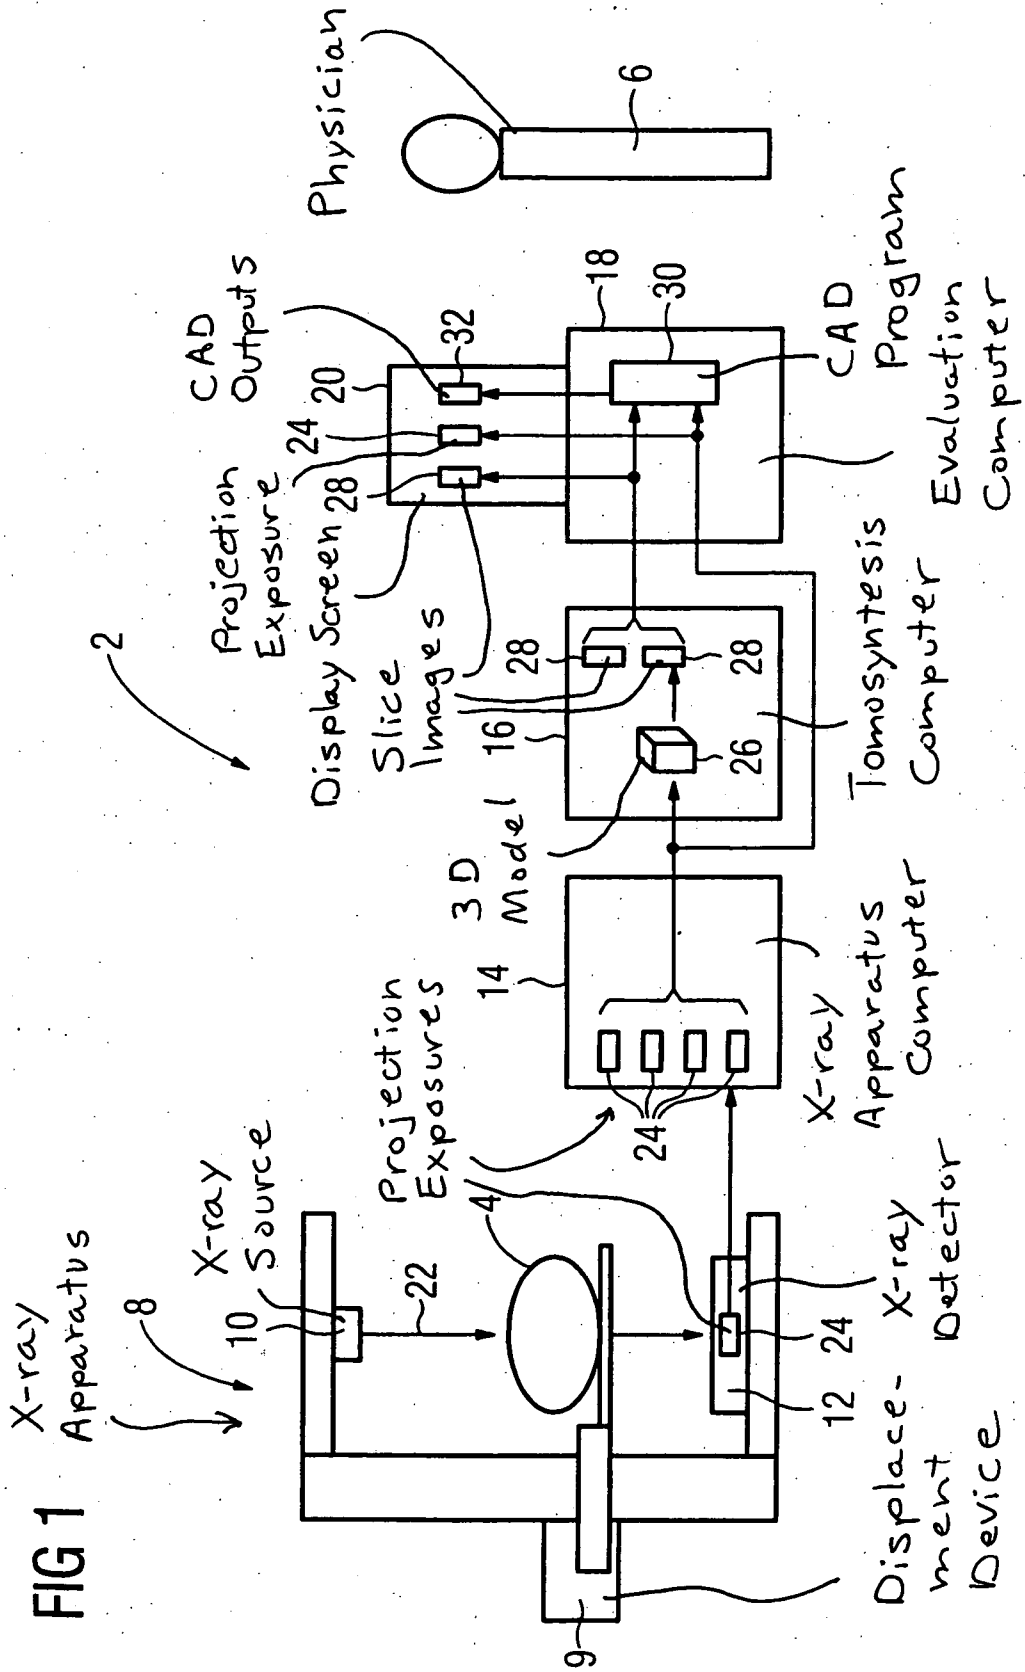 FIG 1
X-ray
Apparatus
8
X-ray
Source
10
22
4
9
Displace-
ment
Device
12
24
X-ray
Detector
Projection
Exposures
24
14
X-ray
Apparatus
Computer
2
3D
Model
16
26
28
28
Tomosyntesis
Computer
Slice
Images
Display Screen
Projection
Exposure
28
24
20
CAD
Outputs
32
18
30
CAD
Program
Evaluation
Computer
Physician
6